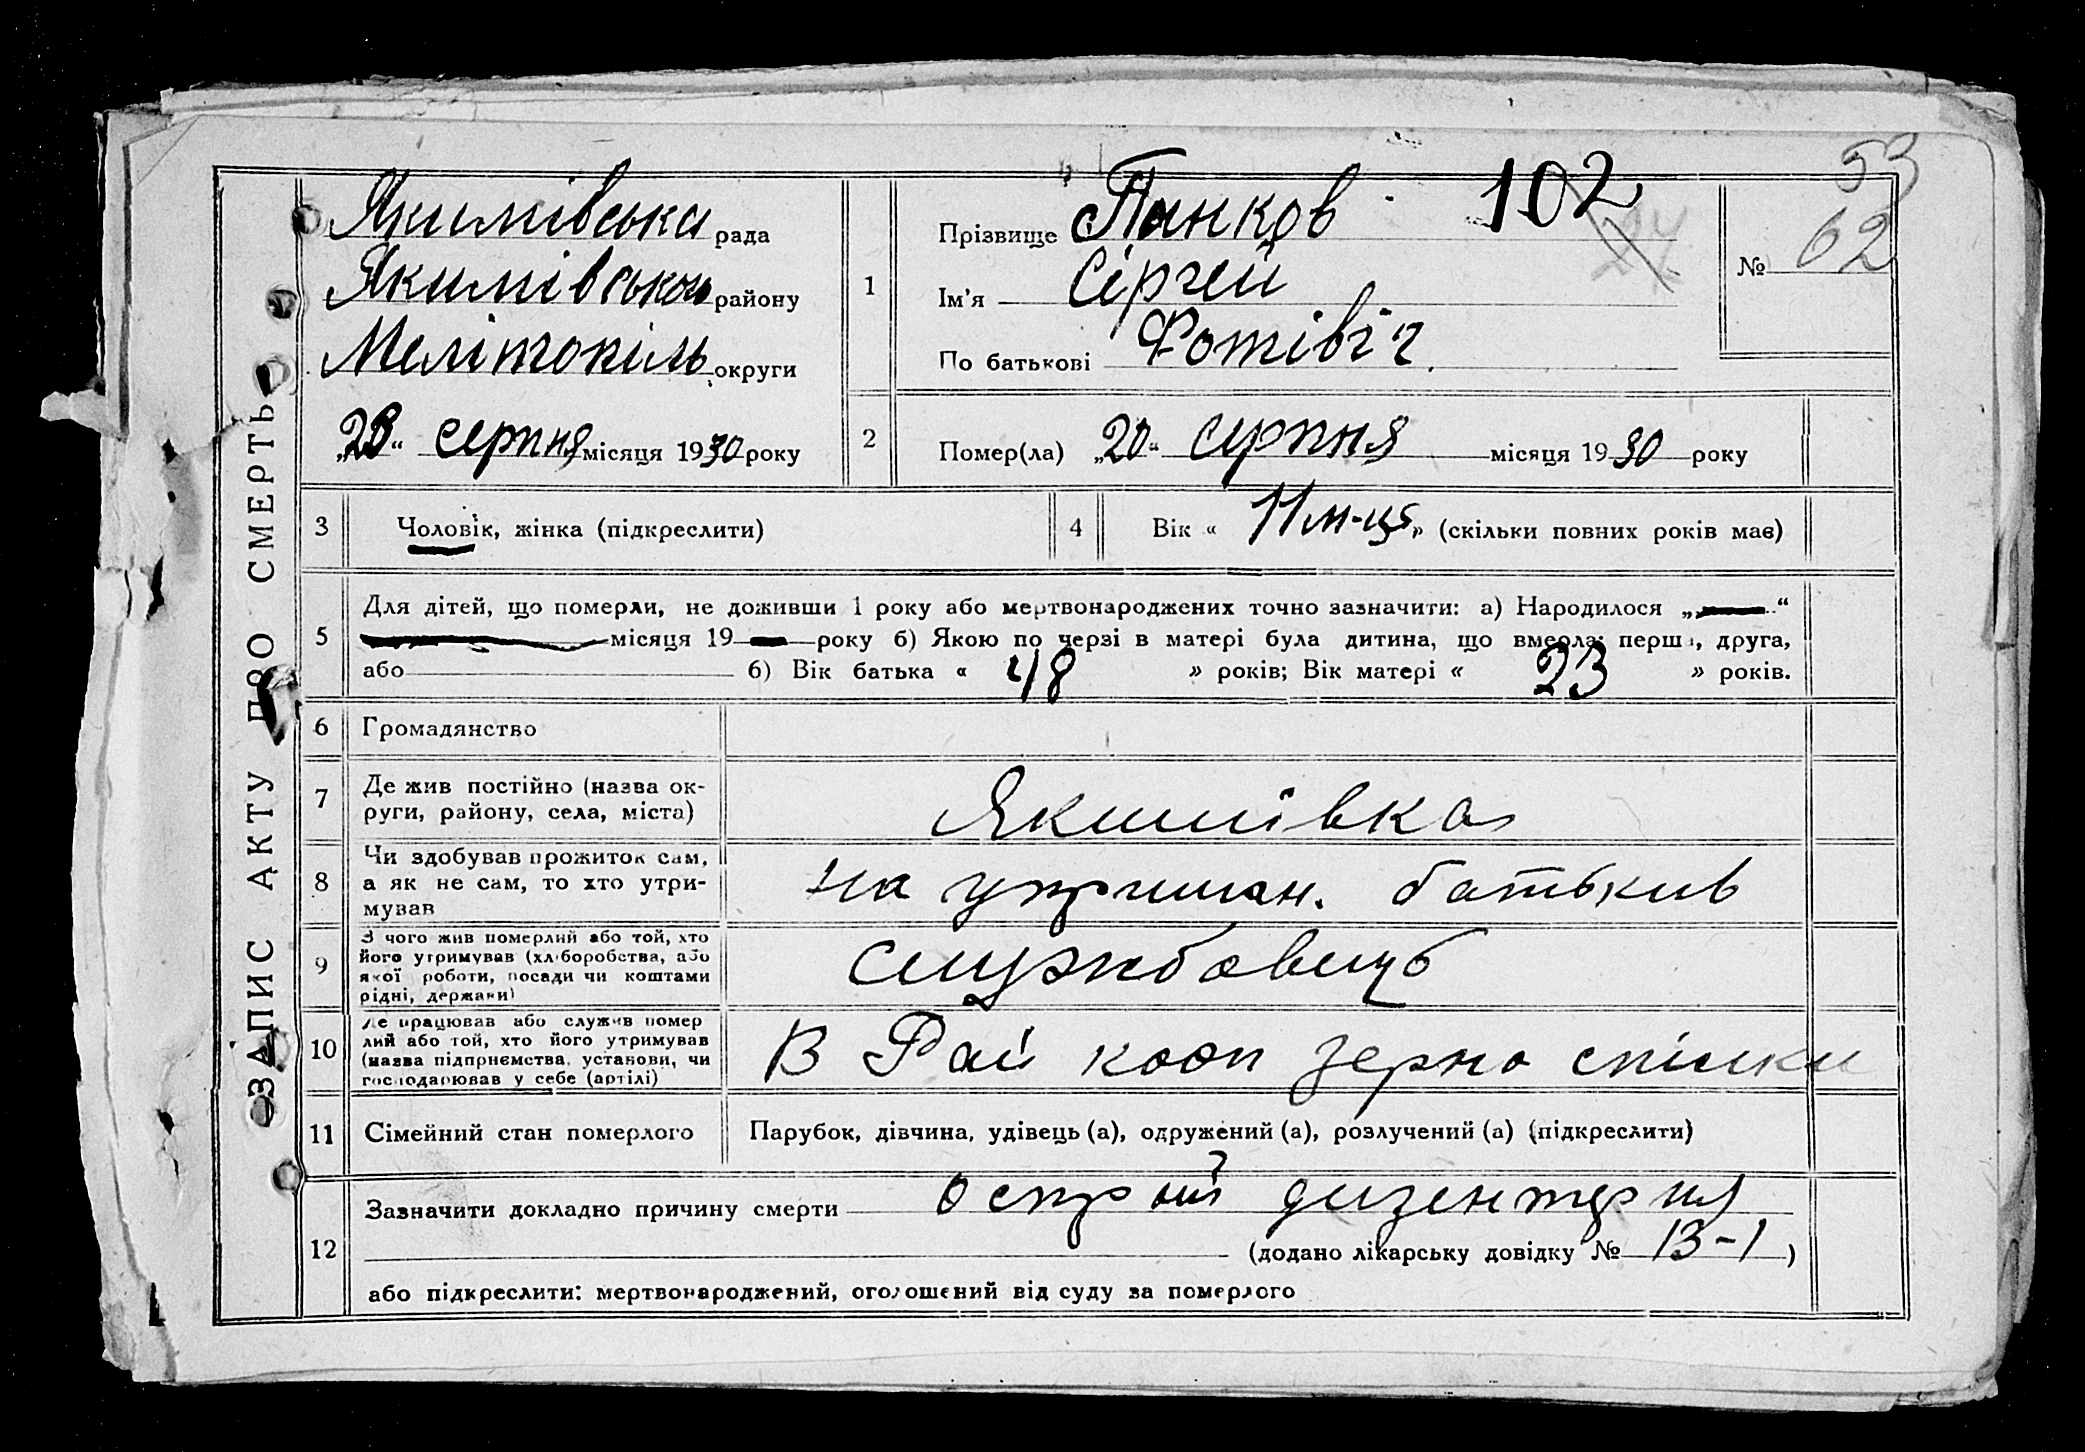 53
ЗАПИС АКТУ ПРО СМЕРТЬ
Якимівська рада
Якимівського району
Мелітопіль округи
„23“ серпня місяця 1930 року
1
Прізвище Панков 102
24
Ім'я Сергей
По батькові Фотівіч
№ 62
2
Помер(ла) „20“ серпня місяця 1930 року
3 Чоловік, жінка (підкреслити)
4 Вік « 11 м-ця » (скільки повних років має)
5 Для дітей, що померли, не доживши 1 року або мертвонароджених точно зазначити: а) Народилося „ “
місяця 19 року б) Якою по черзі в матері була дитина, що вмерла: перша, друга,
або б) Вік батька « 48 » років; Вік матері « 23 » років.
6 Громадянство
7 Де жив постійно (назва ок-
руги, району, села, міста)
Якимівка
8 Чи здобував прожиток сам,
а як не сам, то хто утри-
мував
на утриман. батьків
9 З чого жив померлий або той, хто
його утримував (хліборобства, або
якої роботи, посади чи коштами
рідні, держави)
службовець
10 Де працював або служив помер
лий або той, хто його утримував
(назва підприємства, установи, чи
господарював у себе (артілі)
В Рай кооп зерно спілки
11 Сімейний стан померлого
Парубок, дівчина, удівець (а), одружений (а), розлучений (а) (підкреслити)
12 Зазначити докладно причину смерти острий дизентерия
(додано лікарську довідку № 13-1)
або підкреслити: мертвонароджений, оголошений від суду за померлого